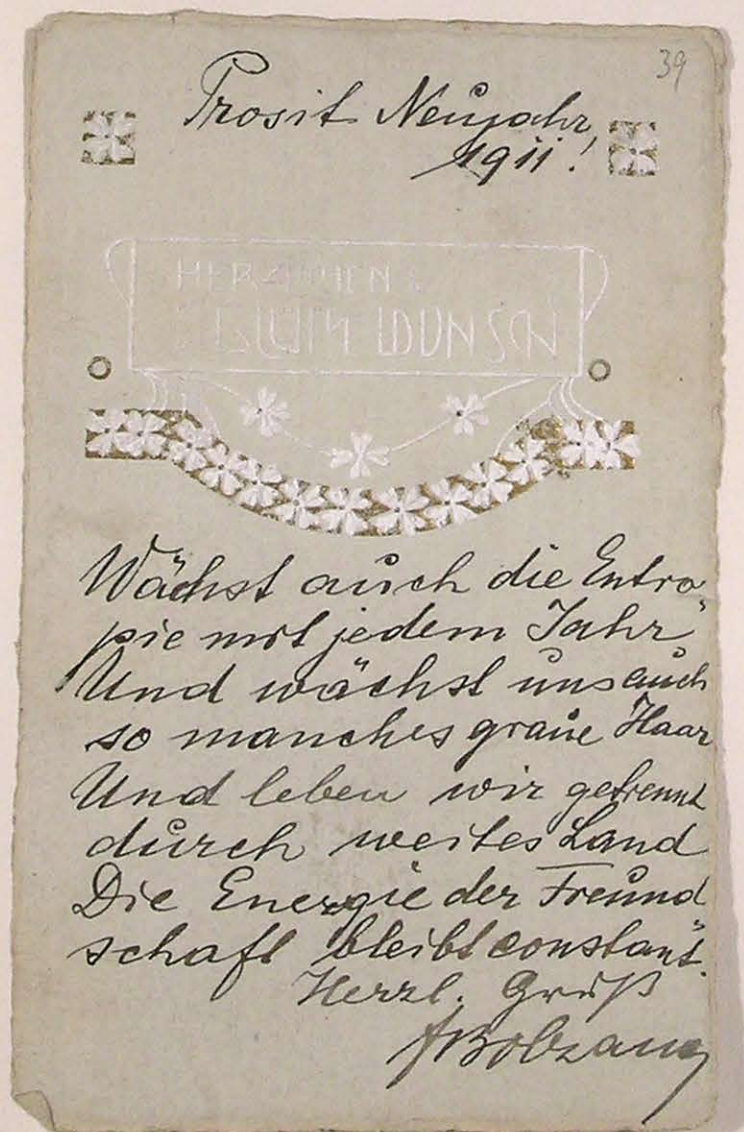 39
Prosit Neujahr,
1911!
HERZLICHEN
GLÜCKWUNSCH
Wächst auch die Entro-
pie mit jedem Jahr
Und wächst uns auch
so manches graue Haar
Und leben wir getrennt
durch weites Land
Die Energie der Freund
schaft bleibt constant.
Herzl. Gruß